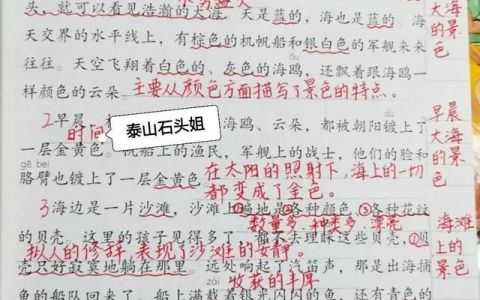 头，就可以看见浩瀚的大海。天是蓝的，海也是蓝的。海
大海的景色
天交界的水平线上，有棕色的机帆船和银白色的军舰来来
往往。天空飞翔着白色的、灰色的海鸥，还飘着跟海鸥一
样颜色的云朵。
主要从颜色方面描写了景色的特点。
2早晨
时间
泰山石头姐
海鸥、云朵，都被朝阳镀上了
早晨大海的景色
一层金黄色。帆船上的渔民，军舰上的战士，他们的脸和
gē bei
胳臂也镀上了一层金黄色。
在太阳的照射下，海上的一切
都变成了金色。
3海边是一片沙滩，沙滩上遍地是各种颜色、各种花纹
数量多 种类多 漂亮
海滩上的景色
的贝壳。这里的孩子见得多了，都不去理睬这些贝壳，贝
拟人的修辞，表现了沙滩的安静。
壳只好寂寞地躺在那里。远处响起了汽笛声，那是出海捕
牧获的丰厚
zài
鱼的船队回来了。船上满载着银光闪闪的鱼，还有青色的